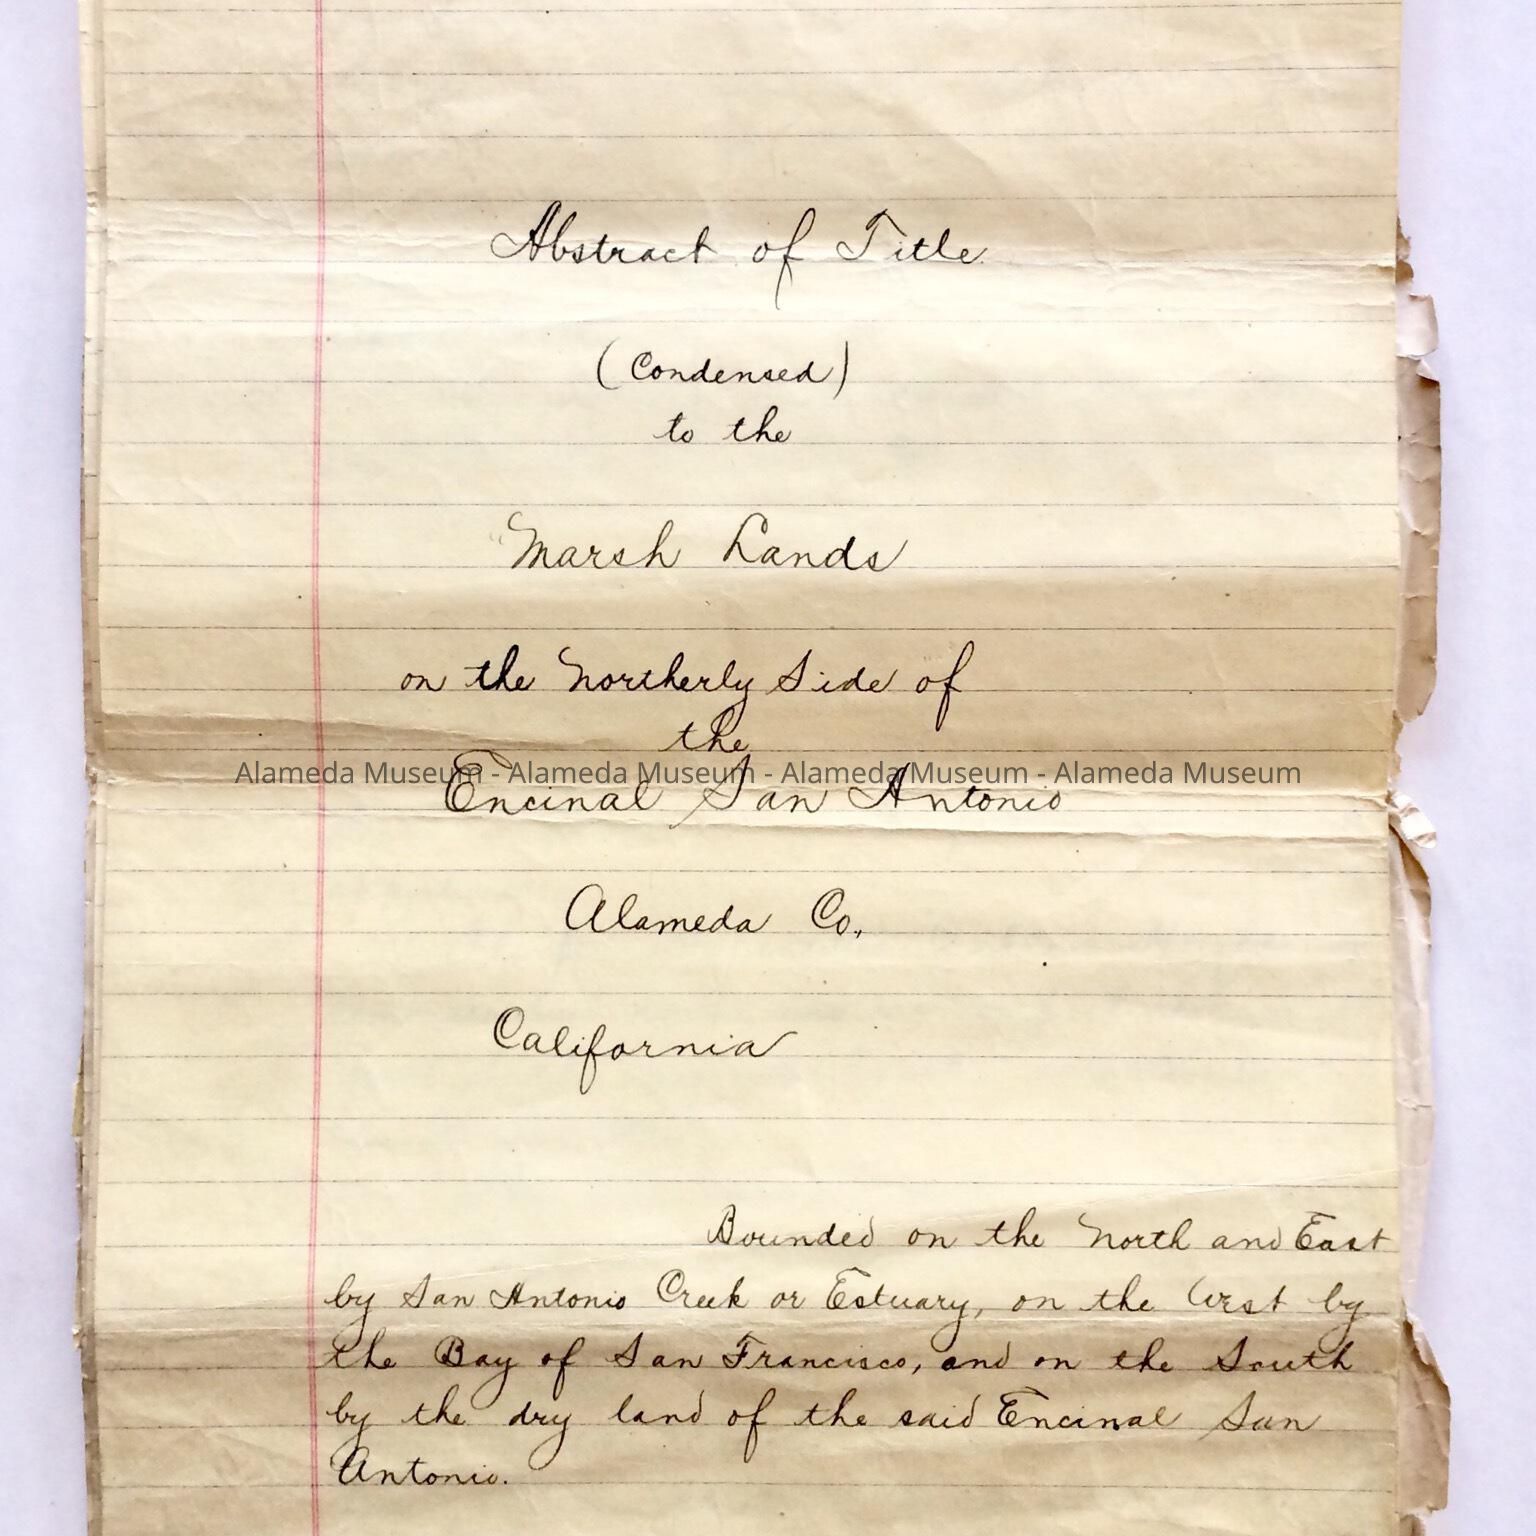 Abstract of Title
(Condensed)
to the
Marsh Lands
on the Northerly Side of
the
Alameda Museum - Alameda Museum - Alameda Museum - Alameda Museum
Encinal San Antonio
Alameda Co.
California
Bounded on the North and East
by San Antonio Creek or Estuary, on the West by
the Bay of San Francisco, and on the South
by the dry land of the said Encinal San
Antonio.